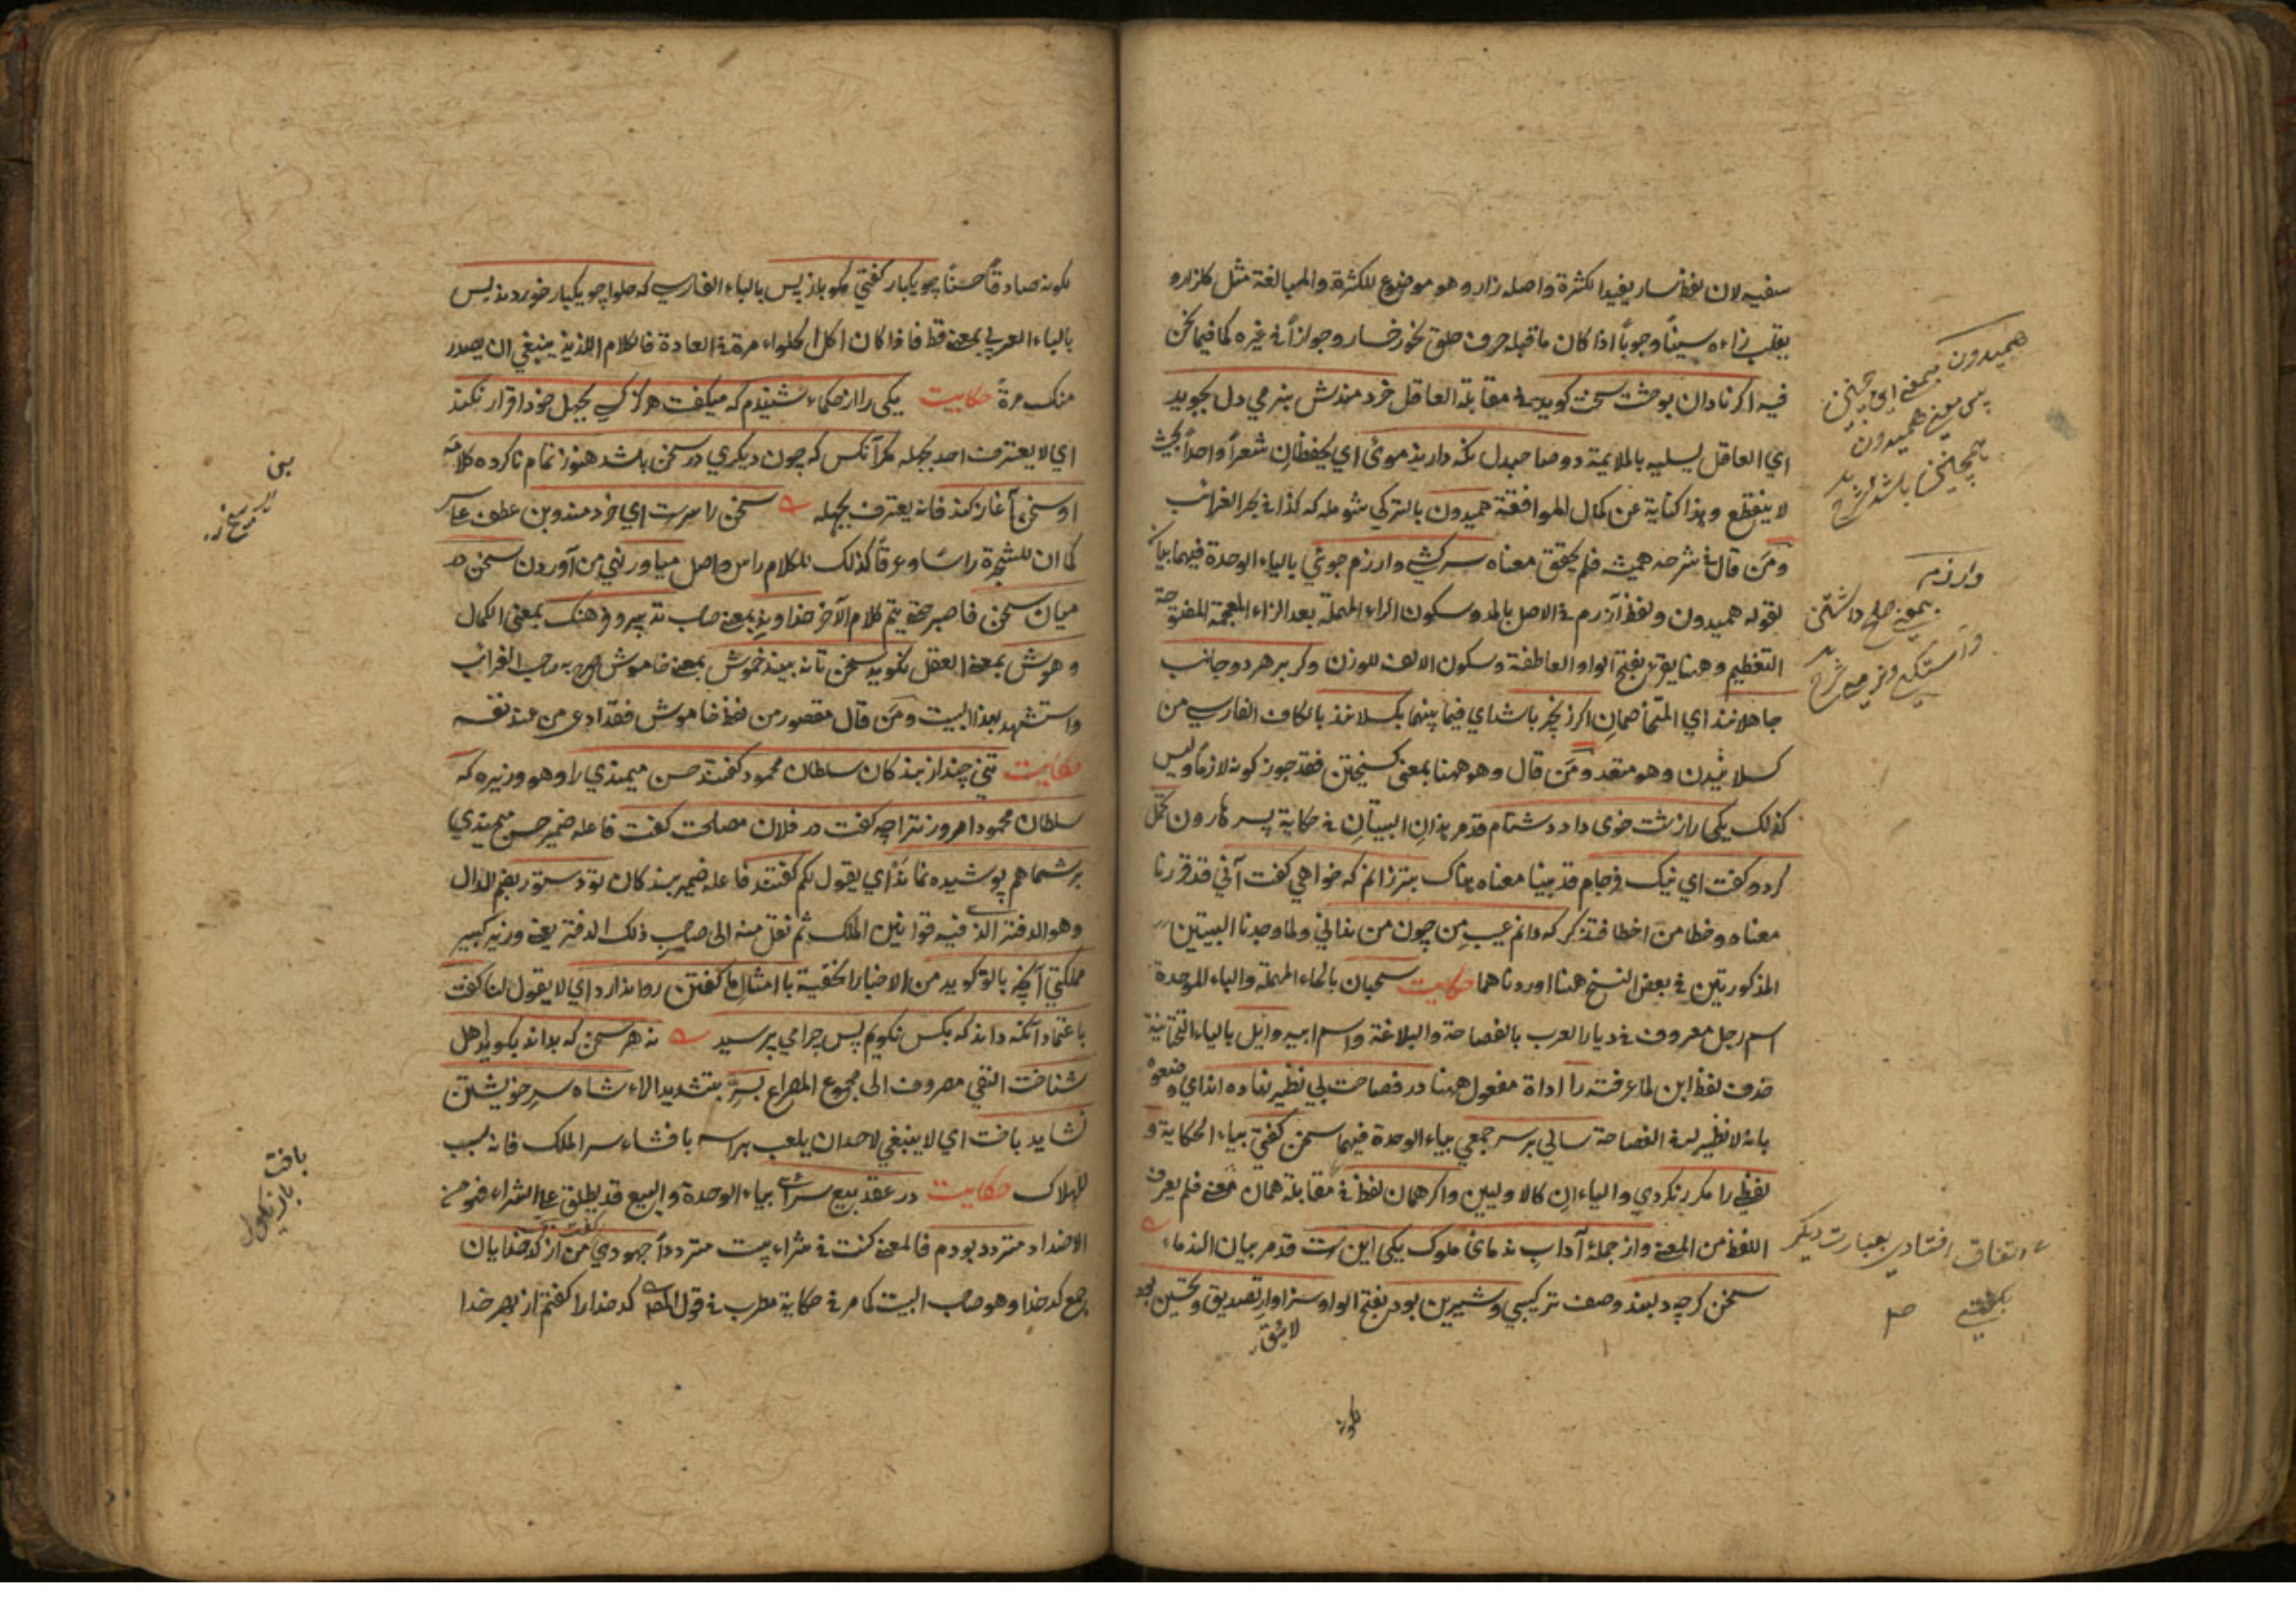 سفيه لان لفظ سار يفيد الكثرة واصله زار وهو موضوع للكثرة والمبالغة مثل كلزار و
يقلب زاءه سيناً وجوباً اذا كان ما قبله حرف حلق نحو رخسار وجوازاً في غيره كما فيما نحن
فيه اكر نادان بوحشت سخت كويد في مقابلة العاقل خردمندش بنرمي دل بجويد
اي العاقل يسليه بالملايمة دو صاحبدل نكه دارند موئى اي يحفظان شعراً واحداً بحيث
لا ينقطع وهذا كناية عن كمال الموافقة هميدون بالتركي شويله كه كذا في بحر الغرائب
ومن قال في شرحه هميشه فلم يحقق معناه سركشي وارزم جوئي بالياء الوحدة فيهما بيان
لقوله هميدون ولفظ آزرم في الاصل بالمد وسكون الراء المهملة بعد الزاء المعجمة المفتوحة
التعظيم وهنا يقرئ بفتح الواو العاطفة وسكون الالف للوزن وكر بر هر دو جانب
جاهلانند اي المتخاصمان اكر زنجير باشد اي فيما بينهما بكسلانند بالكاف الفارسي من
كسلانيدن وهو متعد ومن قال وهو ههنا بمعنى كسيختن فقد جوز كونه لازماً وليس
كذلك يكى را زشت خوى داد دشنام قد مر هذان البيتان في حكاية پسر هارون تحمل
كرد وكفت اي نيك فرجام قد بينا معناه هناك بتر زانم كه خواهي كفت آني قد قررنا
معناه وخطا من اخطا فتذكر كه دانم عيب من چون من نداني ولما وجدنا البيتين
المذكورتين في بعض النسخ هنا اوردناهما حكايت سحبان بالحاء المهملة والباء الموحدة
اسم رجل معروف في ديار العرب بالفصاحة والبلاغة واسم ابيه وايل بالياء التحتانية
حذف لفظ ابن لما عرفته را اداة مفعول ههنا در فصاحت بي نظير نهاده اند اي وضعوه
بانه لا نظير له في الفصاحة سالي بر سر جمعي بياء الوحدة فيهما سخن كفتي بياء الحكاية و
لفظي را مكرر نكردي والياءان كالاوليين واكر همان لفظ في مقابلة همان معنى فلم يعرف
اللفظ من المعنى واز جملهٔ آداب ندماى ملوك يكى اين است قد مر بيان الندماء
سخن كرچه دلبند وصف تركيبي وشيرين بود بفتح الواو سزاوار تصديق وتحسين بود
لايق
بكونه
هميدون بمعنى اى همچنين
پس معنى هميدون
همچنين باشد شرح
وارزم
بمعنى صلح داشتن
اتفاق افتادى بعبارت ديكر
بكفتي
صح
بكونه صادقاً حسناً چو يكبار كفتي مكو باز پس بالباء الفارسي كه حلوا چو يكبار خوردند بس
بالباء العربي بمعنى فقط فاذا كان اكل الحلواء مرة في العادة فالكلام اللذيذ ينبغي ان يصدر
منك مرة حكايت يكى را از حكماء شنيدم كه ميكفت هركز كسي بجهل خود اقرار نكند
اي لا يعترف احد بجهله مكر آنكس كه چون ديكري در سخن باشد هنوز تمام ناكرده كلامه
او سخن آغاز كند فانه يعترف بجهله سخن را سرست اي خردمند وبن عطف على سر
كما ان للشجرة راساً وعرقاً كذلك للكلام راس واصل مياور نهي من آوردن سخن در
ميان سخن فاصبر حتى يتم كلام الآخر خداوند بمعنى صاحب تدبير وفرهنك بمعنى الكمال
وهوش بمعنى العقل نكويد سخن تا نه بيند خموش بمعنى خاموش صرح به صاحب الغرائب
واستشهد بهذا البيت ومن قال مقصور من لفظ خاموش فقد ادعى من عند نفسه
حكايت تني چند از بندكان سلطان محمود كفتند حسن ميمندي را وهو وزيره كه
سلطان محمود امروز ترا چه كفت در فلان مصلحت كفت فاعله ضمير حسن ميمندي
بر شما هم پوشيده نماند اي يقول لكم كفتند فاعله ضمير بندكان تو دستور بضم الدال
وهو الدفتر الذي فيه قوانين الملك ثم نقل منه الى صاحب ذلك الدفتر يعني وزير كبير
مملكتي آنچه با تو كويد من الاخبار الخفية با امثال ما كفتن روا ندارد اي لا يقول لنا كفت
باعتماد آنكه داند كه بكس نكويم پس چرا مي پرسيد نه هر سخن كه بداند بكويد اهل
شناخت النفي مصروف الى مجموع المصراع بسرّ بتشديد الراء شاه سر خويشتن
نشايد باخت اي لا ينبغي لاحد ان يلعب براسه بافشاء سر الملك فانه سبب
للهلاك حكايت در عقد بيع سرائى بياء الوحدة والبيع قد يطلق على الشراء فهو من
الاضداد متردد بودم فالمعنى كنت في شراء بيت متردداً جهودي كفت من از كدخدايان
جمع كدخدا وهو صاحب البيت كما مر في حكاية مطرب في قول المص كدخدا را كفتم از بهر خدا
بن